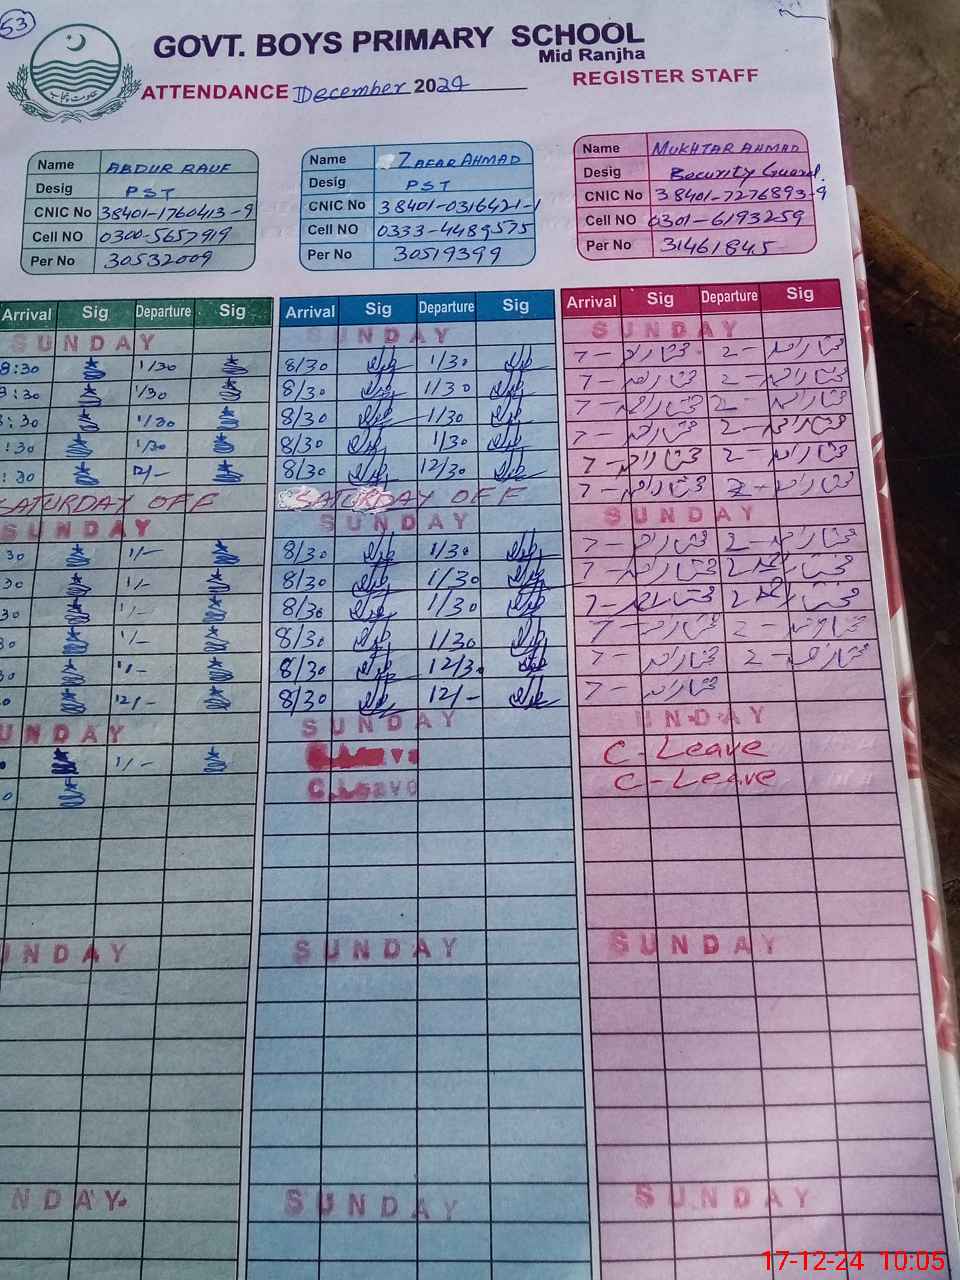 53
GOVT. BOYS PRIMARY SCHOOL
Mid Ranjha
ATTENDANCE December 2024 REGISTER STAFF
Name ABDUR RAUF
Desig PST
CNIC No 38401-1760413-9
Cell NO 0300-5657919
Per No 30532009
Name ZAFAR AHMAD
Desig PST
CNIC No 38401-0316421-1
Cell NO 0333-4489575
Per No 30519399
Name MUKHTAR AHMAD
Desig Security Guard.
CNIC No 38401-7276893-9
Cell NO 0301-6193259
Per No 31461845
Arrival Sig Departure Sig
SUNDAY
8:30 1/30
8:30 1/30
8:30 1/30
:30 1/30
:30 12/-
SATURDAY OFF
SUNDAY
30 1/-
30 1/-
30 1/-
30 1/-
30 1/-
0 12/-
UNDAY
1/-
0
UNDAY
NDAY
Arrival Sig Departure Sig
SUNDAY
8/30 1/30
8/30 1/30
8/30 1/30
8/30 1/30
8/30 12/30
SATURDAY OFF
SUNDAY
8/30 1/30
8/30 1/30
8/30 1/30
8/30 1/30
8/30 12/30
8/30 12/-
SUNDAY
C.Leave
C.Leave
SUNDAY
SUNDAY
Arrival Sig Departure Sig
SUNDAY
7- مختار احمد 2- مختار احمد
7- مختار احمد 2- مختار احمد
7- مختار احمد 2- مختار احمد
7- مختار احمد 2- مختار احمد
7- مختار احمد 2- مختار احمد
7- مختار احمد 2- مختار احمد
SUNDAY
7- مختار احمد 2- مختار احمد
7- مختار احمد 2- مختار احمد
7- مختار احمد 2- مختار احمد
7- مختار احمد 2- مختار احمد
7- مختار احمد 2- مختار احمد
7- مختار احمد
UNDAY
C-Leave
C-Leave
SUNDAY
SUNDAY
17-12-24 10:05